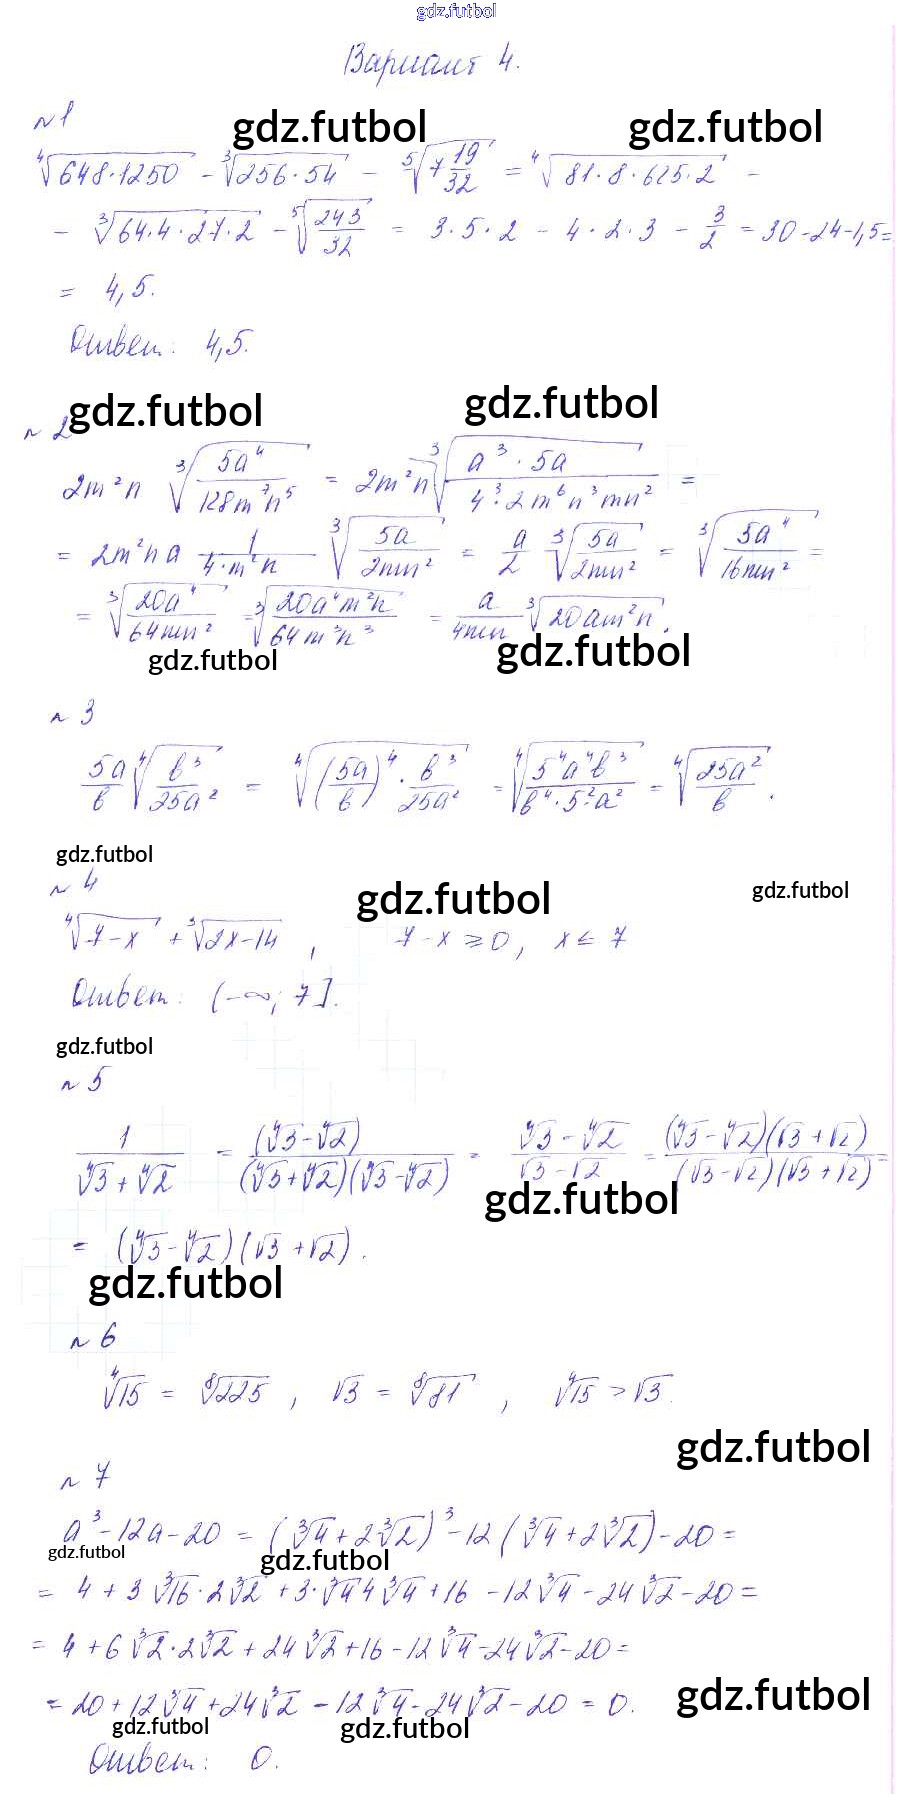 gdz.futbol
Вариант 4.
№1
gdz.futbol gdz.futbol
⁴√(648·1250) - ³√(256·54) - ⁵√(7 19/32) = ⁴√(81·8·625·2) -
- ³√(64·4·27·2) - ⁵√(243/32) = 3·5·2 - 4·2·3 - 3/2 = 30-24-1,5=
= 4,5.
Ответ: 4,5.
gdz.futbol gdz.futbol
№2
2m²n ³√(5a⁴/128m⁷n⁵) = 2m²n ³√(a³·5a/4³·2m⁶n³mn²) =
= 2m²na 1/4·m²n ³√(5a/2mn²) = a/2 ³√(5a/2mn²) = ³√(5a⁴/16mn²) =
= ³√(20a⁴/64mn²) = ³√(20a⁴m²n/64m³n³) = a/4mn ³√(20am²n).
gdz.futbol gdz.futbol
№3
5a/b ⁴√(b³/25a²) = ⁴√((5a/b)⁴·b³/25a²) = ⁴√(5⁴a⁴b³/b⁴·5²a²) = ⁴√(25a²/b).
gdz.futbol
№4
gdz.futbol gdz.futbol
⁴√(7-x) + ³√(2x-14), 7-x ≥ 0, x ≤ 7
Ответ: (-∞; 7].
gdz.futbol
№5
1/(⁴√3+⁴√2) = (⁴√3-⁴√2)/((⁴√3+⁴√2)(⁴√3-⁴√2)) = (⁴√3-⁴√2)/(√3-√2) = (⁴√3-⁴√2)(√3+√2)/((√3-√2)(√3+√2)) =
gdz.futbol
= (⁴√3-⁴√2)(√3+√2).
gdz.futbol
№6
⁴√15 = ⁸√225, √3 = ⁸√81, ⁴√15 > √3.
gdz.futbol
№7
a³-12a-20 = (³√4+2³√2)³-12(³√4+2³√2)-20=
gdz.futbol gdz.futbol
= 4+3³√16·2³√2+3·³√4 4³√4+16-12³√4-24³√2-20=
= 4+6³√2·2³√2+24³√2+16-12³√4-24³√2-20=
= 20+12³√4+24³√2-12³√4-24³√2-20=0.
gdz.futbol
gdz.futbol gdz.futbol
Ответ: 0.